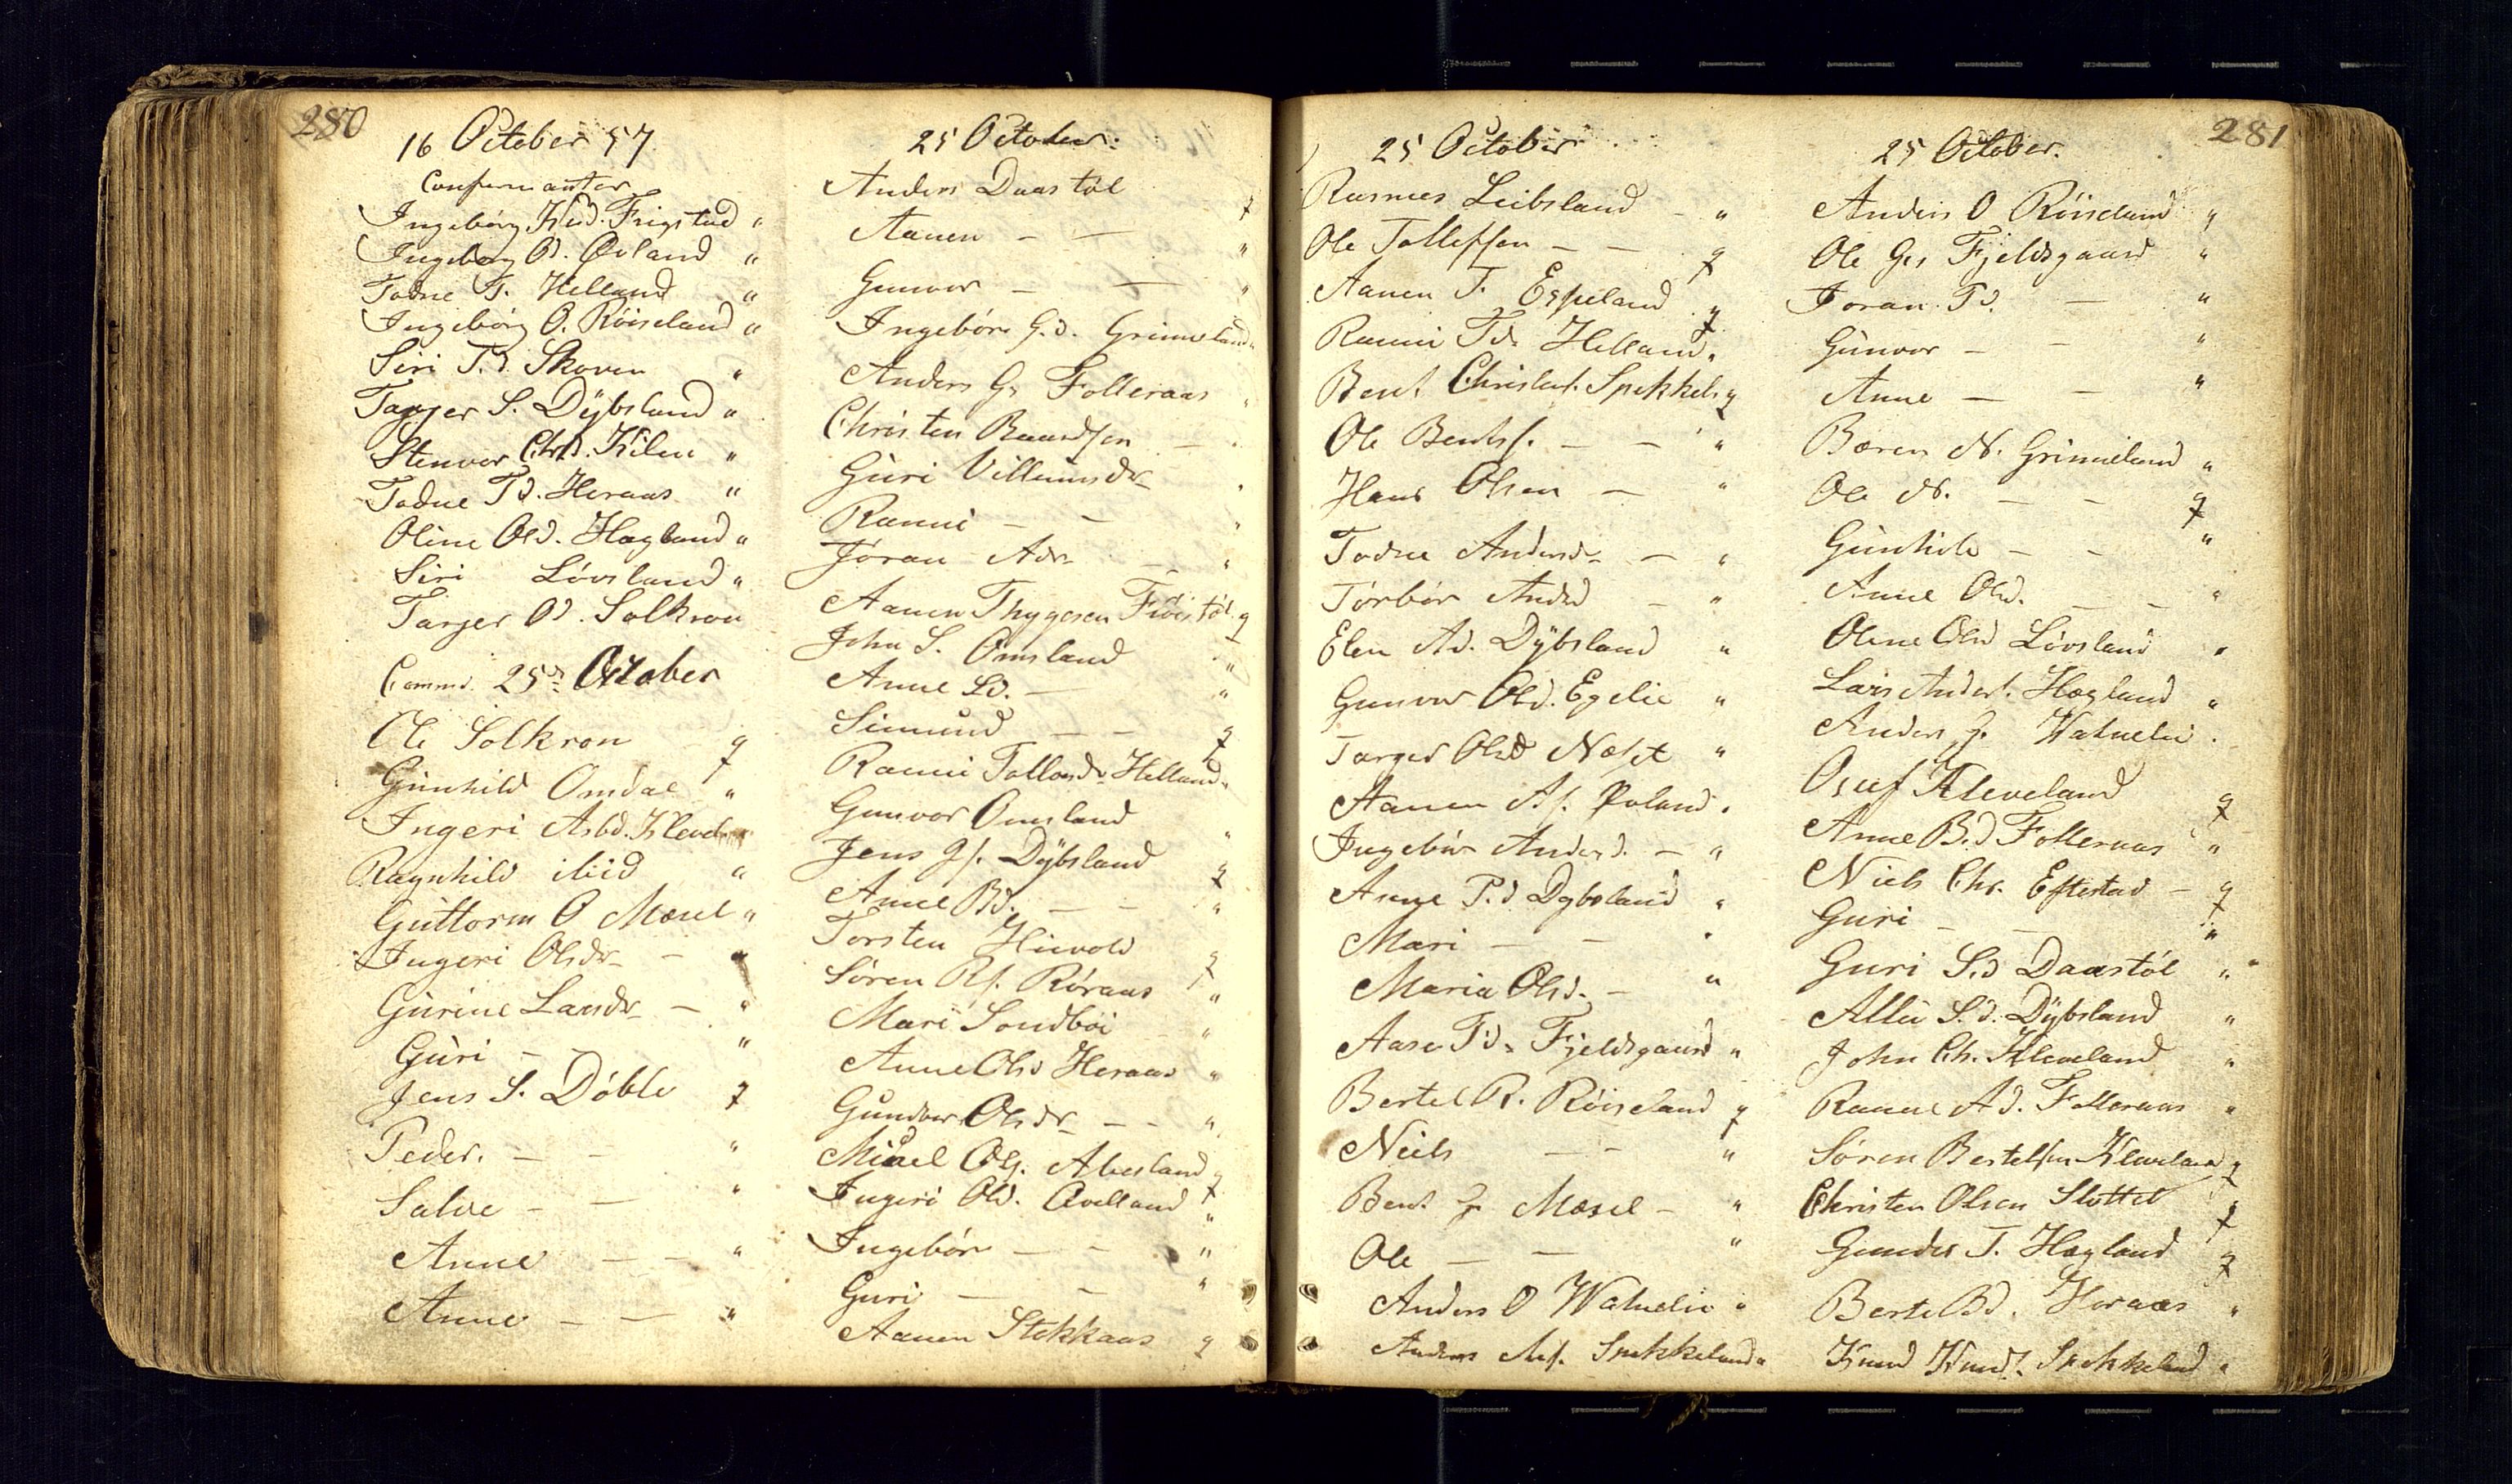 280
16 October 57
Confirmanter
Ingebörg Knd. Frigstad "
Ingeborg Od. Øvland "
Todne T. Helland "
Ingebörg O. Röiseland "
Siri T.d. Skoven "
Tarjer S. Dÿbsland "
Stenvor Chrd. Kilen "
Todne Td. Heraas "
Oline Old. Hægland "
Siri Lövsland "
Tarjer Od. Solkron
Comm. 25de October
Ole Solkron q
Gunhild Omdal "
Ingeri Asbd. Klevel
Ragnhild ibid "
Guttorm O Mæsel "
Ingeri Olsdr - "
Gurine Larsdr - "
Guri - - "
Jens S. Döble q
Peder. - - "
Salve - - "
Anne - - "
Anne - - "
25 October.
Anders Daastöl q
Aanen - - "
Gunvor - - "
Ingebör G.d. Grimeland "
Anders Gs Folleraas "
Christen Baardsen - "
Guri Villumsdr "
Ranni - - "
Jöran Adr - "
Aanen Thygesen Fröistöl q
John S. Omsland "
Anne Sd. - "
Simund - - q
Ranni Tollevsdr Helland "
Gunvor Omsland "
Jens Gs. Dÿbsland q
Anne Bd. - - "
Torsten Hievold q
Sören Rs. Röraas "
Mari Sondböi "
Anne Olsd Heraas "
Gundvor Olsdr - - "
Micael Ols. Abesland q
Ingeri Old. Qvelland "
Ingebör - - "
Guri - - "
Aanen Stokkaas q
25 October
Rasmus Leibsland - "
Ole Tollefsen - - q
Aanen T. Espeland q
Ranni Td. Helland "
Bent Christens. Spikkels q
Ole Bents. - - "
Hans Olsen - "
Todne Andersd - "
Törbör Andsd - "
Elen Ad. Dÿbsland "
Gunvor Old. Egelie "
Targer Olsd Næset "
Aanen As. Øvland "
Ingebör Andersd. - "
Anne P.d Dybsland "
Mari - - "
Maria Olsd. - "
Aase Td. Fjeldsgaard "
Bertel R. Röiseland q
Niels - - "
Bent Gs Mæsel - "
Ole - - "
Anders O Watnelie "
Anders Ns. Spikkeland "
281
25 October.
Anders O Röiseland "
Ole Gs Fjeldsgaard "
Joran Td. - "
Gunvor - - "
Anne - - "
Bæren N. Grimeland "
Ole N. - - q
Gunhild - - "
Anne Old. - - "
Oline Olsd Lövsland "
Lars Anders. Hægland "
Anders G. Watnelie "
Osuf Kleveland q
Anne B.d Folleraas "
Niels Chr. Eftestad - q
Guri - - "
Guri S.d Daastöl "
Allis S.d. Dÿbsland "
John Ch. Kleveland "
Ranne Ad. Folleraas "
Sören Bertelsen Kleveland q
Christen Olsen Slottet q
Gundes T. Hægland q
Berte Bd. Heraas "
Knud Knuds. Spikkeland "